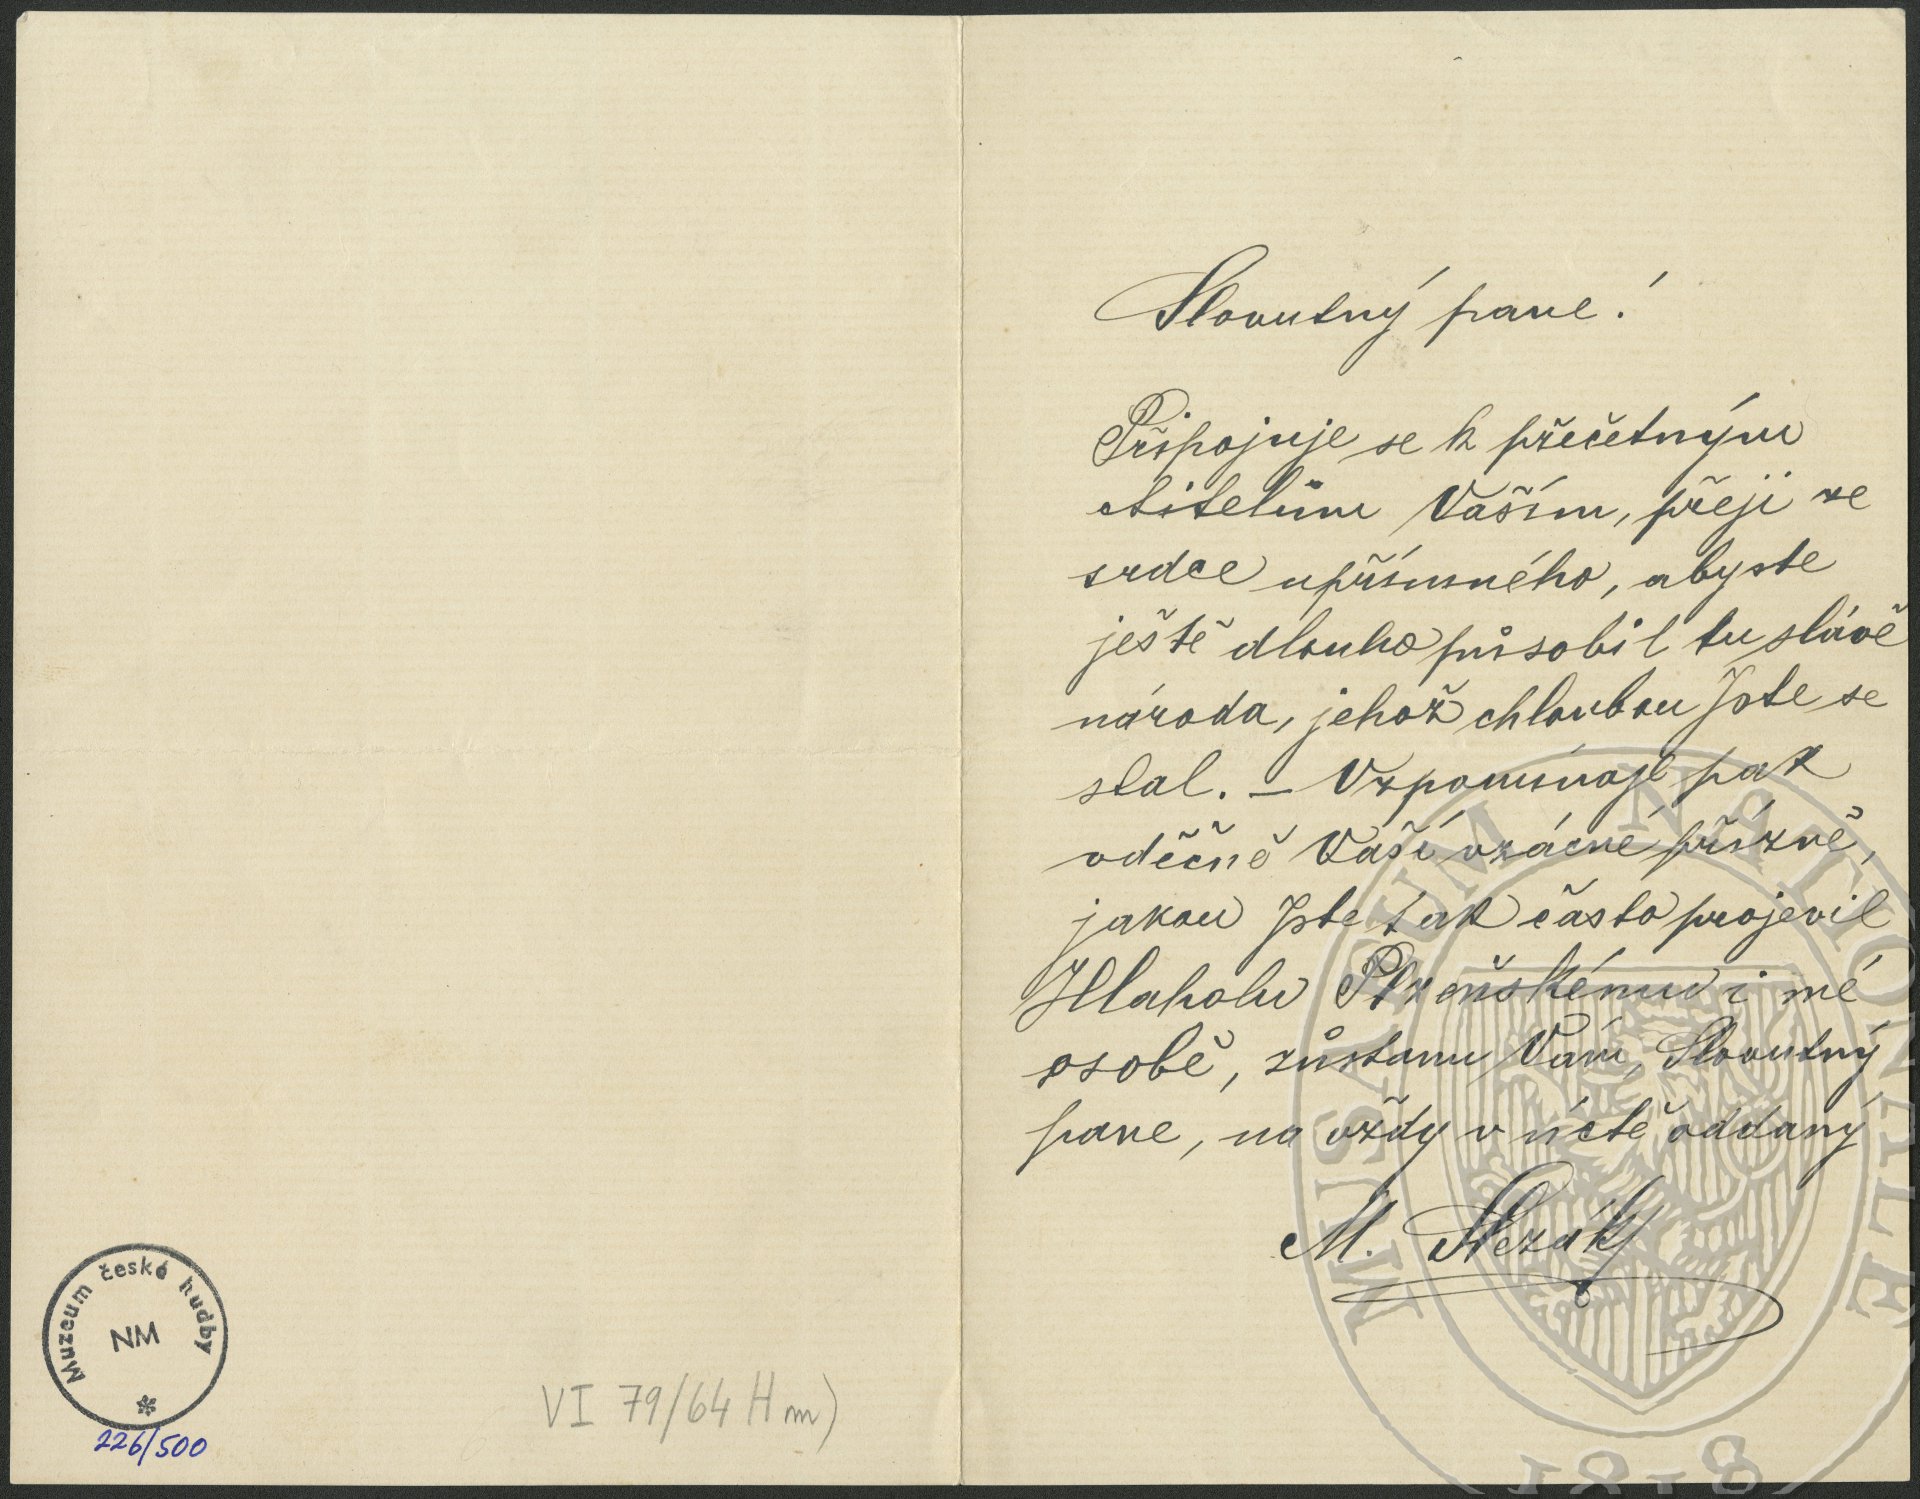 Slovutný pane!
Připojuje se k přečetným
ctitelům Vaším, přeji ze
srdce upřímného, abyste
ještě dlouho působil tu slávě
národa, jehož chloubou Jste se
stal. – Vzpomínaje pak
vděčně Vaší vzácné přízně,
jakou Jste tak často projevil
Hlaholu Plzeňskému i mé
osobě, zůstanu Vám, Slovutný
pane, na vždy v úctě oddaný
M.
Muzeum české hudby
NM
226/500
VI 79/64 H m)
MUSAEUM NATIONALE
1818